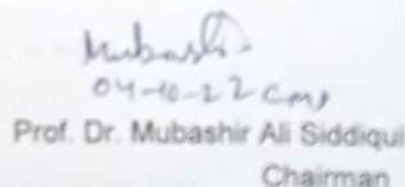 Mubashir
04-10-22
Prof. Dr. Mubashir Ali Siddiqui
Chairman